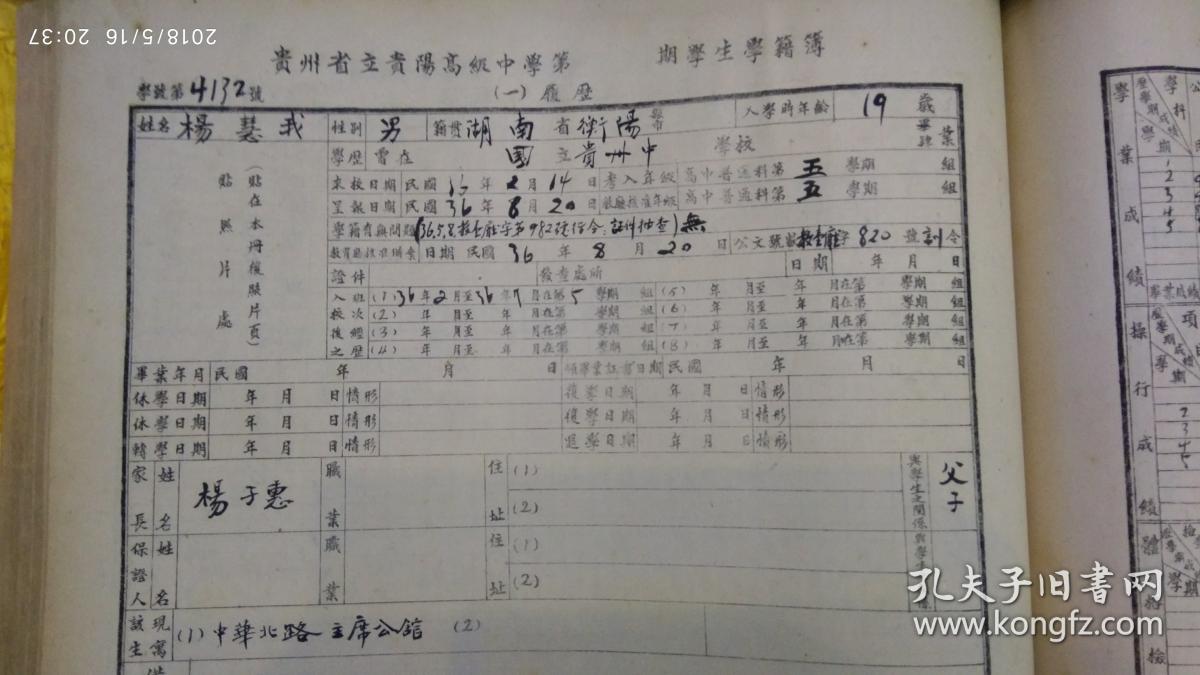 2018/5/16 20:37
貴州省立貴陽高級中學第 期學生學籍簿
學號第4132號 (一)履歷
姓名 楊慧我 性別 男 籍貫 湖南省衡陽縣市 入學時年齡 19 歲
學歷 曾在 國立貴州中 學校 畢肄業
來校日期 民國 年2月14日 考入年級 高中普通科第五學期 組
呈報日期 民國36年8月20日 教廳核准年級 高中普通科第五學期 組
學籍有無問題 無
日期 民國36年8月20日 公文號數 820號訓令
證件 發查處所 日期 年 月 日
入班 (1)36年2月至36年7月在第5學期 組 (5) 年 月至 年 月在第 學期 組
校次 (2) 年 月至 年 月在第 學期 組 (6) 年 月至 年 月在第 學期 組
後經 (3) 年 月至 年 月在第 學期 組 (7) 年 月至 年 月在第 學期 組
之歷 (4) 年 月至 年 月在第 學期 組 (8) 年 月至 年 月在第 學期 組
(貼在本冊後照片頁)
貼照片處
畢業年月 民國 年 月 日 領畢業証書日期 民國 年 月 日
休學日期 年 月 日 情形 復學日期 年 月 日 情形
休學日期 年 月 日 情形 復學日期 年 月 日 情形
轉學日期 年 月 日 情形 退學日期 年 月 日 情形
家長姓名 楊子惠 職業 住址 (1) (2) 與學生之關係 父子
保證人姓名 職業 住址 (1) (2)
該生現寓 (1)中華北路主席公館 (2)
學業成績
操行成績
體格檢
孔夫子旧书网
www.kongfz.com